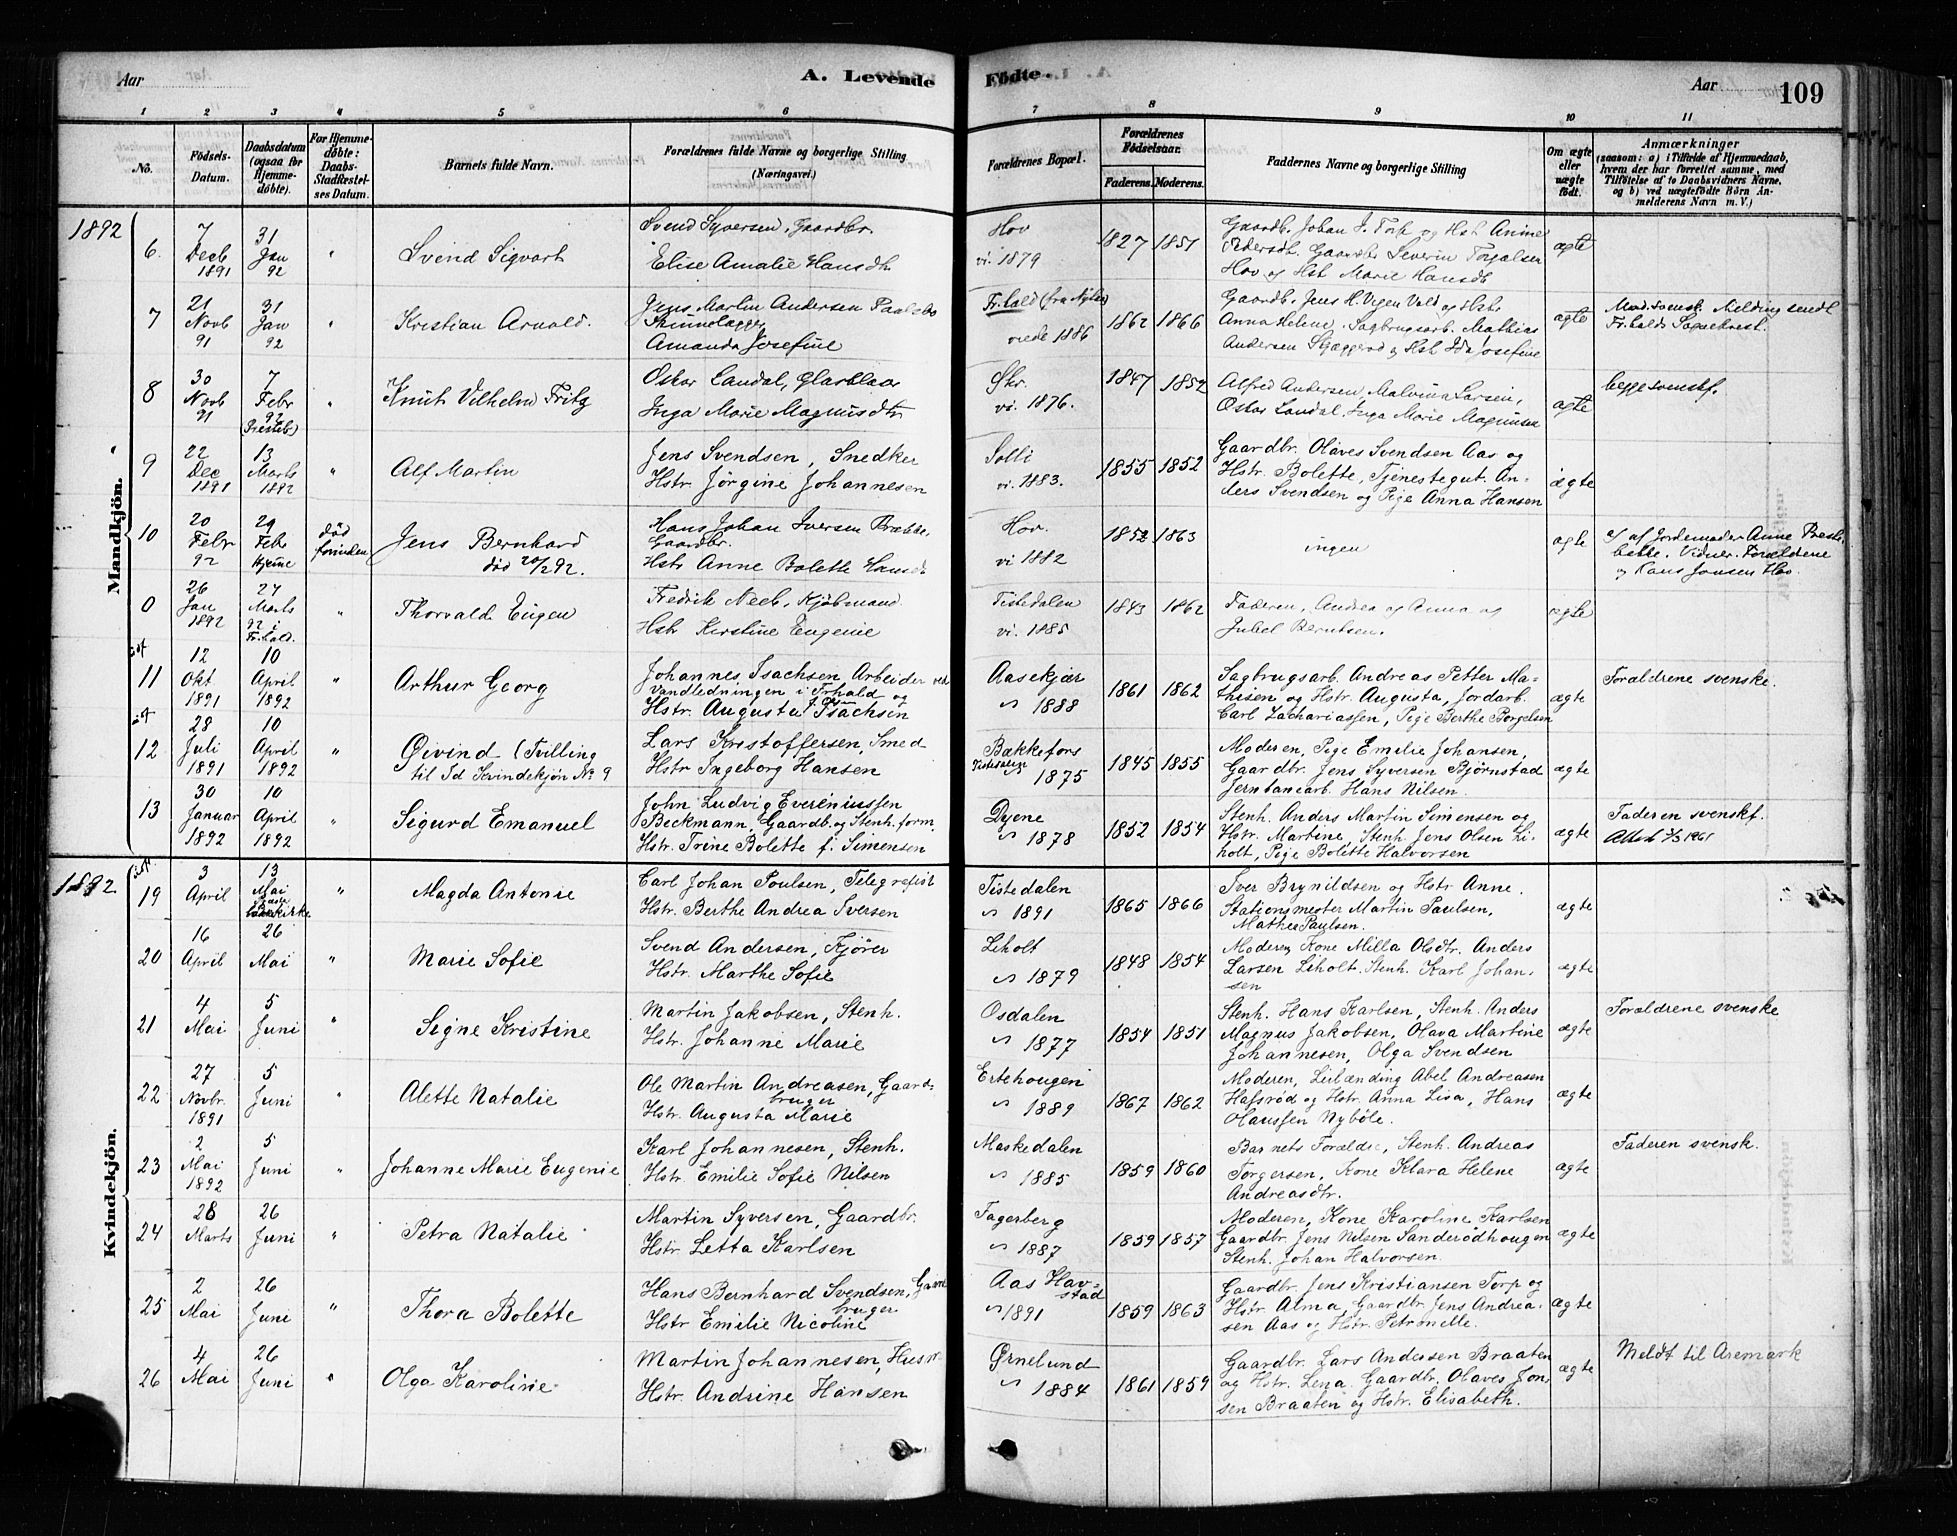 Aar
A. Levende
Födte.
Aar
109
1 2 3 4 5 6 7 8 9 10 11
No.
Födsels-Datum.
Daabsdatum (ogsaa for Hjemme-döbte).
For Hjemme-döbte: Daabs-Stadfæstel-ses Datum.
Barnets fulde Navn.
Forældrenes fulde Navne og borgerlige Stilling (Næringsvei.)
Forældrenes Bopæl.
Forældrenes Födselsaar.
Faderens. Moderens.
Faddernes Navne og borgerlige Stilling
Om ægte eller uægte födt.
Anmærkninger
(saasom: a) i Tilfælde af Hjemmedaab,
hvem der har forrettet samme, med
Tilföielse af to Daabsvidners Navne,
og b) ved uægtefödte Börn An-
melderens Navn m. V.)
1892
Mandkjön.
6. 7 Decb 1891 31 Jan 92 " Svend Sigvart
Svend Syversen, Gaardbr.
Elise Amalie Hansdtr
Hov vi. 1879 1827 1851
Gaardb. Johan J. Torp og Hst Anine
Pedersdt. Gaardbr Severin Torgalsen
Hov og Hst Marie Hansdt
ægte
7 21 Novb 91 31 Jan 92 " Kristian Arnold.
Jens Martin Andersen
Amanda Josefine
Fr.hald (fra 1886 1862 1866
Gaardb. Jens H. Vegen Vold og Hstr
Anna Helene, Sagbrugsarb. Mathias
Andersen Skjæggerød og Hst Ida Josefine
ægte
Mod. svensk. Melding sendt
Fr.halds Sognekrest.
8 30 Novb 91 7 Febr 92 (Presteb) " Knut Vilhelm Fritz
Oskar Landal, Glarblaar
Inga Marie Magnusdtr
vi. 1876. 1847 1852
Alfred Andersen, Malvina Larsen,
Oskar Landal, Inga Marie Magnusen
ægte
begge svenskf.
9 22 Dec 1891 13 Marts 1892 " Alf Martin
Jens Svendsen, Snedker
Hstr. Jørgine Johannesen
Solli vi. 1883. 1855 1852
Gaardbr. Olaves Svendsen Aas og
Hstr. Bolette, Tjenestegut. An-
ders Svendsen og Pige Anna Hansen
ægte
10 20 Febr 92 29 Febr Hjeme død forinden Jens Bernhard
død 20/2 92.
Hans Johan Iversen Brække,
Gaardbr.
Hstr Anne Bolette Hansdt
Hov. vi 1882 1852 1863
ingen
ægte
af Jordemoder Anne Prest-
bakke. Vidner. Forældrene
og Hans Jensen Hov.
0 26 Jan 1892 27 Marts 92 i Fr.hald. " Thorvald Eugen
Fredrik Neeb, Kjøbmand.
Hstr Kirstine Eugenie
Tistedalen vi. 1885 1843 1862
Faderen, Andrea og Anna og
Juhel Berntsen.
ægte
11 12 Okt 1891 10 April 1892 " Arthur Georg
Johannes Isachsen Arbeider ved
Vandledningen i Frhald og
Hstr. Augusta Isachsen
Aasekjær 1888 1861 1862
Sagbrugsarb. Andreas Petter Ma-
thisen og Hstr. Augusta, Jordarb.
Carl Zachariassen, Pige Berthe Borgelsen
ægte
Forældrene svenske.
12 28 Juli 1891 10 April 1892 " Øivind (Tvilling
til Id Kvindekjøn No 9
Lars Kristoffersen, Smed
Hstr Ingeborg Hansen
Bækkefors Tistedalen 1875 1845 1855
Moderen, Pige Emilie Johansen,
Gaardbr. Jens Syversen Bjørnstad
Jernbanearb. Hans Nilsen.
ægte
13 30 Januar 1892 10 April 1892 " Sigurd Emanuel
John Ludvig Evereniussen
Beckmann, Gaardb. og Stenh.form.
Hstr. Trine Bolette f. Simensen
Dyene 1878 1852 1854
Stenh. Anders Martin Simensen og
Hstr. Martine, Stenh. Jens Olsen Li-
holt, Pige Bolette Halvorsen
ægte
Faderen svenskf.
1892
Kvindekjön.
19 3 April 13 Mai " Magda Antonie
Carl Johan Poulsen, Telegrafist
Hstr. Berthe Andrea Iversen
Tistedalen 1891 1865 1866
Iver Brynildsen og Hstr. Anne.
Stationsmester Martin Paulsen,
Mathea Paulsen.
ægte
20 16 April 26 Mai " Marie Sofie
Svend Andersen, Kjører
Hstr. Marthe Sofie
Liholt 1879 1848 1854
Moderen, Kone Milla Olsdtr. Anders
Larsen Liholt. Stenh. Karl Johan-
sen
ægte
21 4 Mai 5 Juni " Signe Kristine
Martin Jakobsen, Stenh.
Hstr. Johanne Marie
Osdalen 1877 1854 1851
Stenh. Hans Karlsen, Stenh. Anders
Magnus Jakobsen, Olava Martine
Johannesen, Olga Svendsen
ægte
Forældrene svenske
22 27 Novbr. 1891 5 Juni " Alette Natalie
Ole Martin Andreasen, Gaard-
bruger
Hstr. Augusta Marie
Ertehougen 1889 1867 1862
Moderen, Leilænding Abel Andreasen
Hafsrød og Hstr. Anna Lisa, Hans
Olaussen Nybøle.
ægte
23 2 Mai 1892 5 Juni " Johanne Marie Eugenie
Karl Johannesen, Stenh.
Hstr. Emilie Sofie Nilsen
Maskedalen 1885 1859 1860
Barnets Foreldre, Stenh. Andreas
Torgersen, Kone Klara Helene
Andreasdtr.
ægte
Faderen svensk.
24 28 Marts 26 Juni " Petra Natalie
Martin Syversen, Gaardbr.
Hstr Letta Karlsen
Fagerberg 1887 1859 1857
Moderen, Kone Karoline Karlsen
Gaardbr. Jens Nilsen Sanderødhougen
Stenh. Johan Halvorsen.
ægte
25 2 Mai 26 Juni " Thora Bolette
Hans Bernhard Svendsen, Gaard-
bruger
Hstr Emilie Nicoline
Aas Hov-
stad 1891 1859 1863
Gaardbr. Jens Kristiansen Torp og
Hstr. Alma, Gaardbr. Jens Andrea-
sen Aas og Hstr. Petronelle.
ægte
26 4 Mai 26 Juni " Olga Karoline
Martin Johannesen, Husm.
Hstr. Andrine Hansen
Ørnelund 1884 1861 1859
Gaardbr. Lars Andersen Braaten
og Hstr. Lena. Gaardbr. Olaves Jon-
sen Braaten og Hstr. Elisabeth.
ægte
Meldt til Aremark